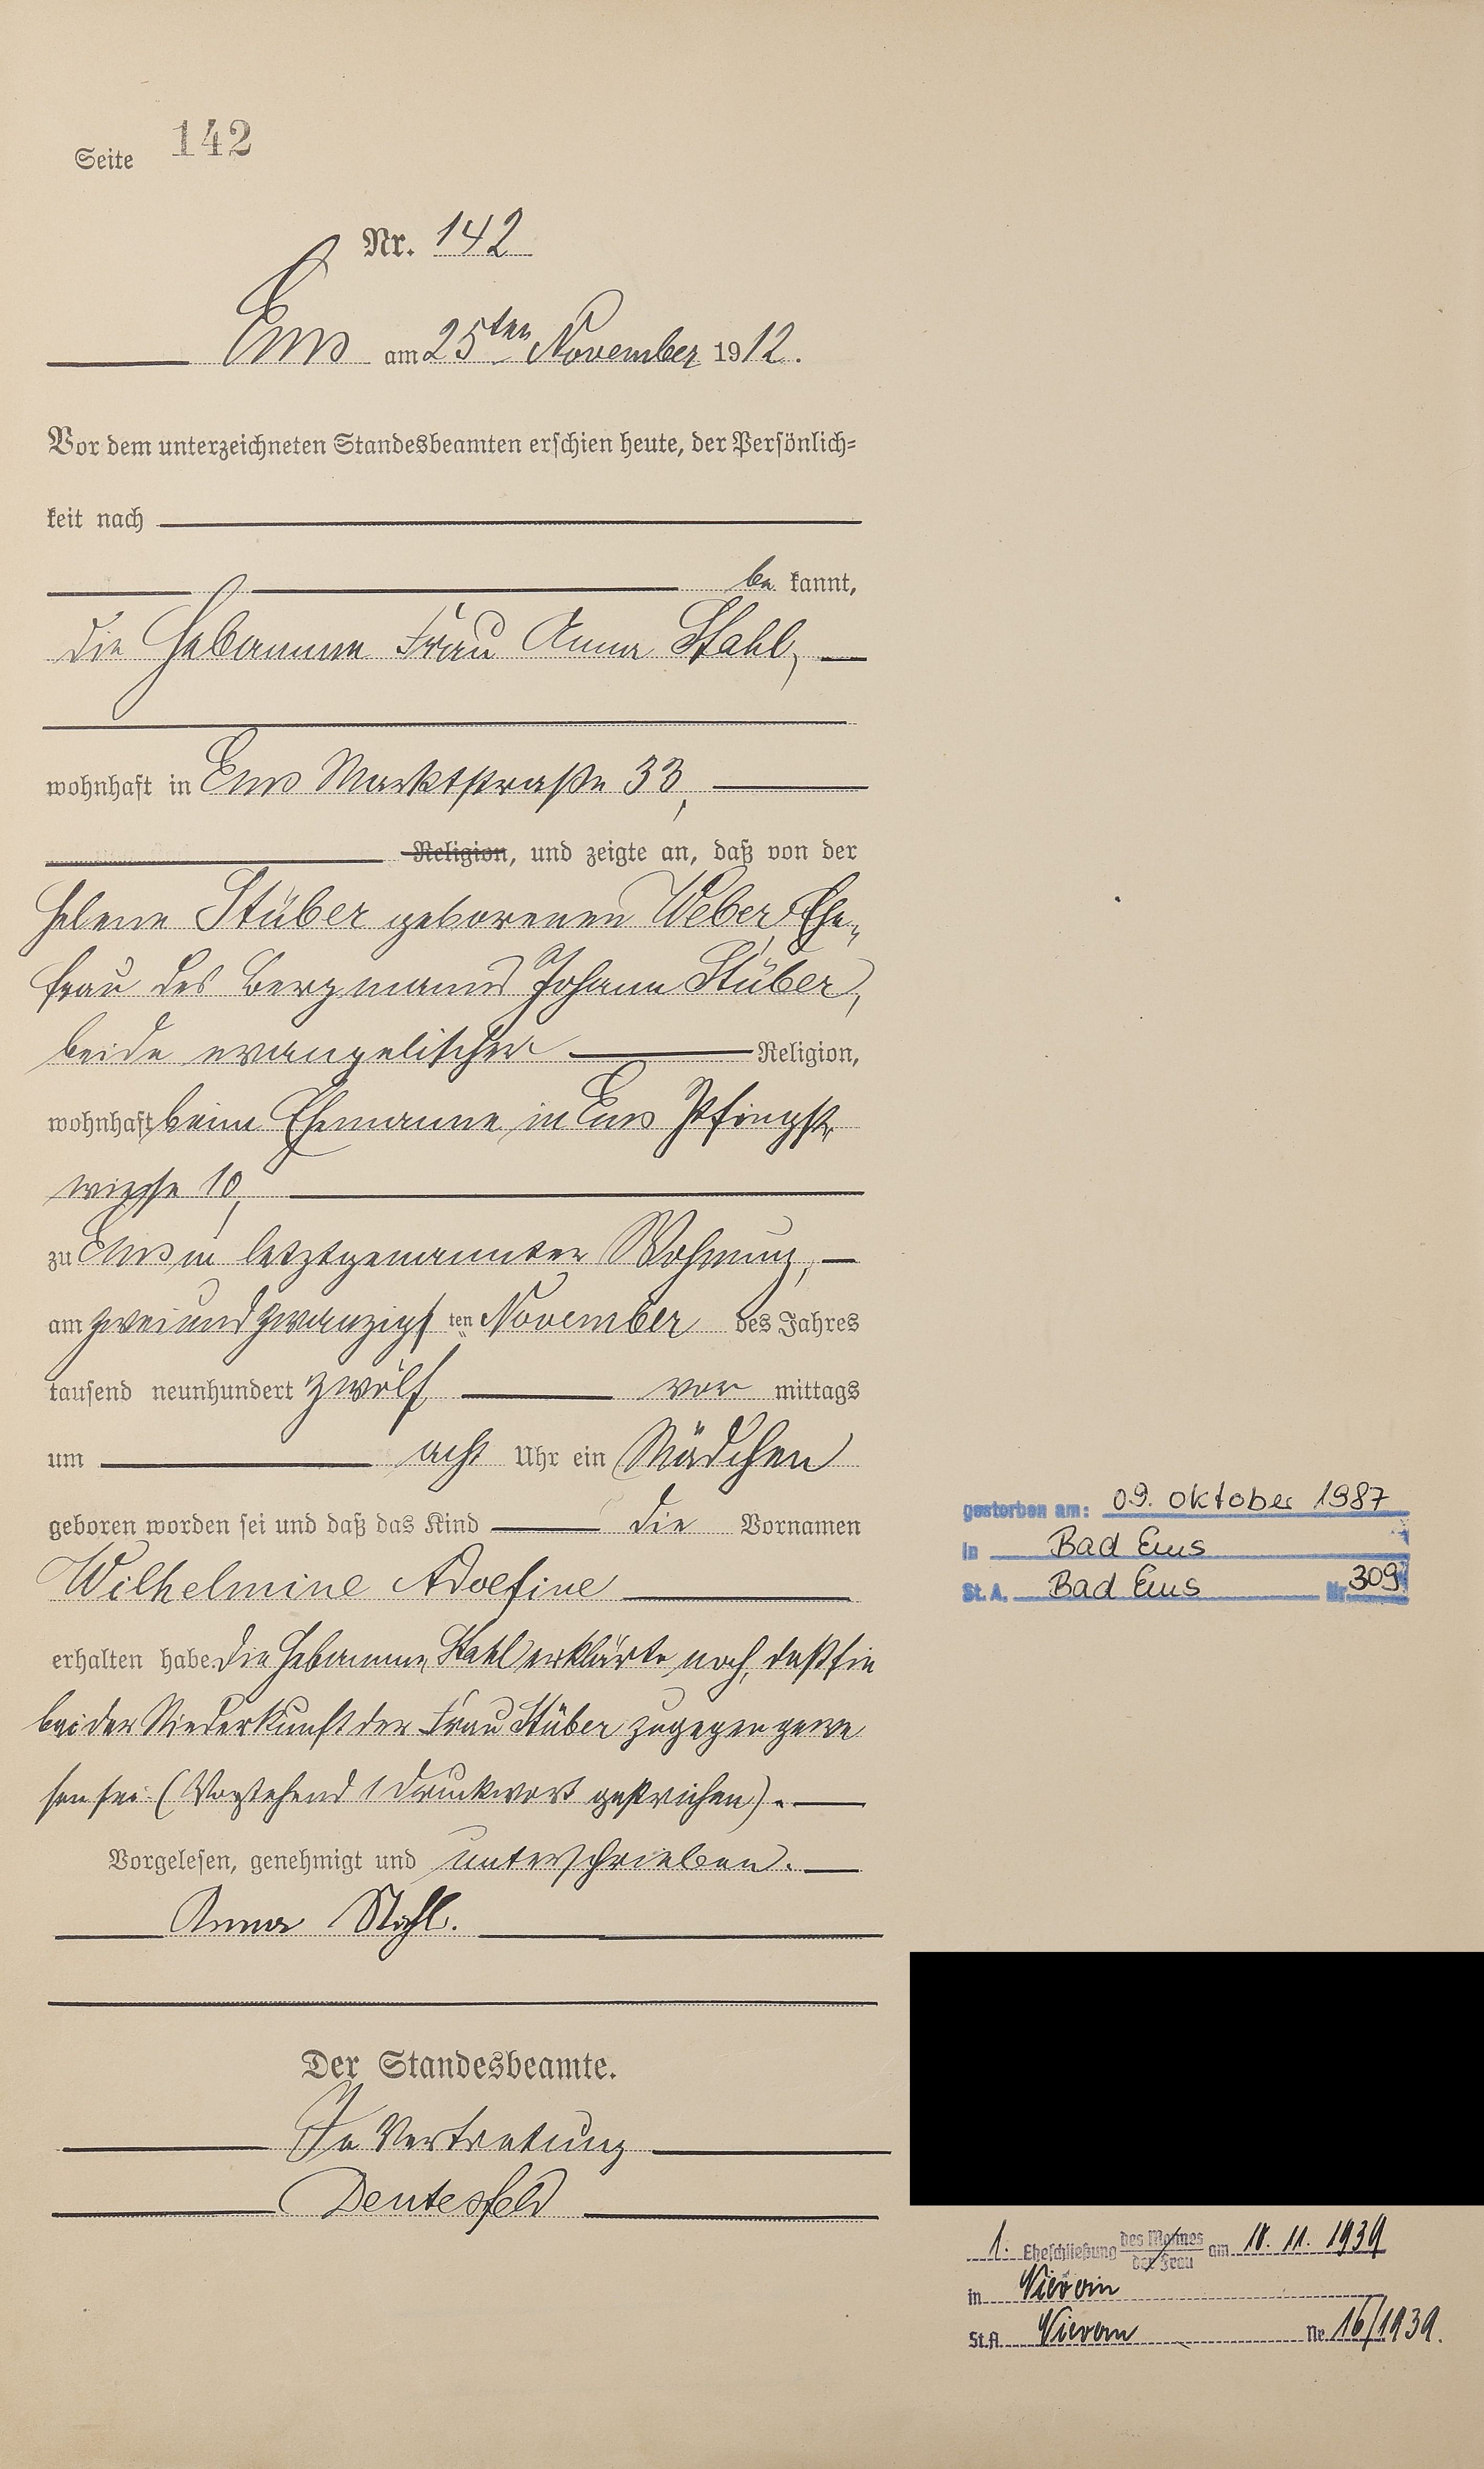 Seite 142
Nr. 142
Ems am 25ten November 1912.
Vor dem unterzeichneten Standesbeamten erschien heute, der Persönlich-
keit nach
be kannt,
die Hebamme Frau Anna Stahl,
wohnhaft in Ems Marktstraße 33,
Religion, und zeigte an, daß von der
Helene Stüber geborenen Weber, Ehe-
frau des Bergmanns Johann Stüber,
beide evangelischer Religion,
wohnhaft beim Ehemanne in Ems Pfingst-
wiese 10,
zu Ems in letztgenannter Wohnung,
am zweiundzwanzigsten November des Jahres
tausend neunhundert zwölf vor mittags
um acht Uhr ein Mädchen
geboren worden sei und daß das Kind die Vornamen
Wilhelmine Adolfine
erhalten habe. Die Hebamme Stahl erklärte noch, daß sie
bei der Niederkunft der Frau Stüber zugegen gewe
sen sei. (Vorstehend 1 Druckwort gestrichen).
Vorgelesen, genehmigt und unterschrieben.
Anna Stahl.
Der Standesbeamte.
In Vertretung
Dentesfeld
gestorben am: 09. Oktober 1987
in Bad Ems
St. A. Bad Ems Nr. 309
1. Eheschließung des Mannes
der Frau am 18. 11. 1939
in Nievern
St.A. Nievern Nr. 16/1939.